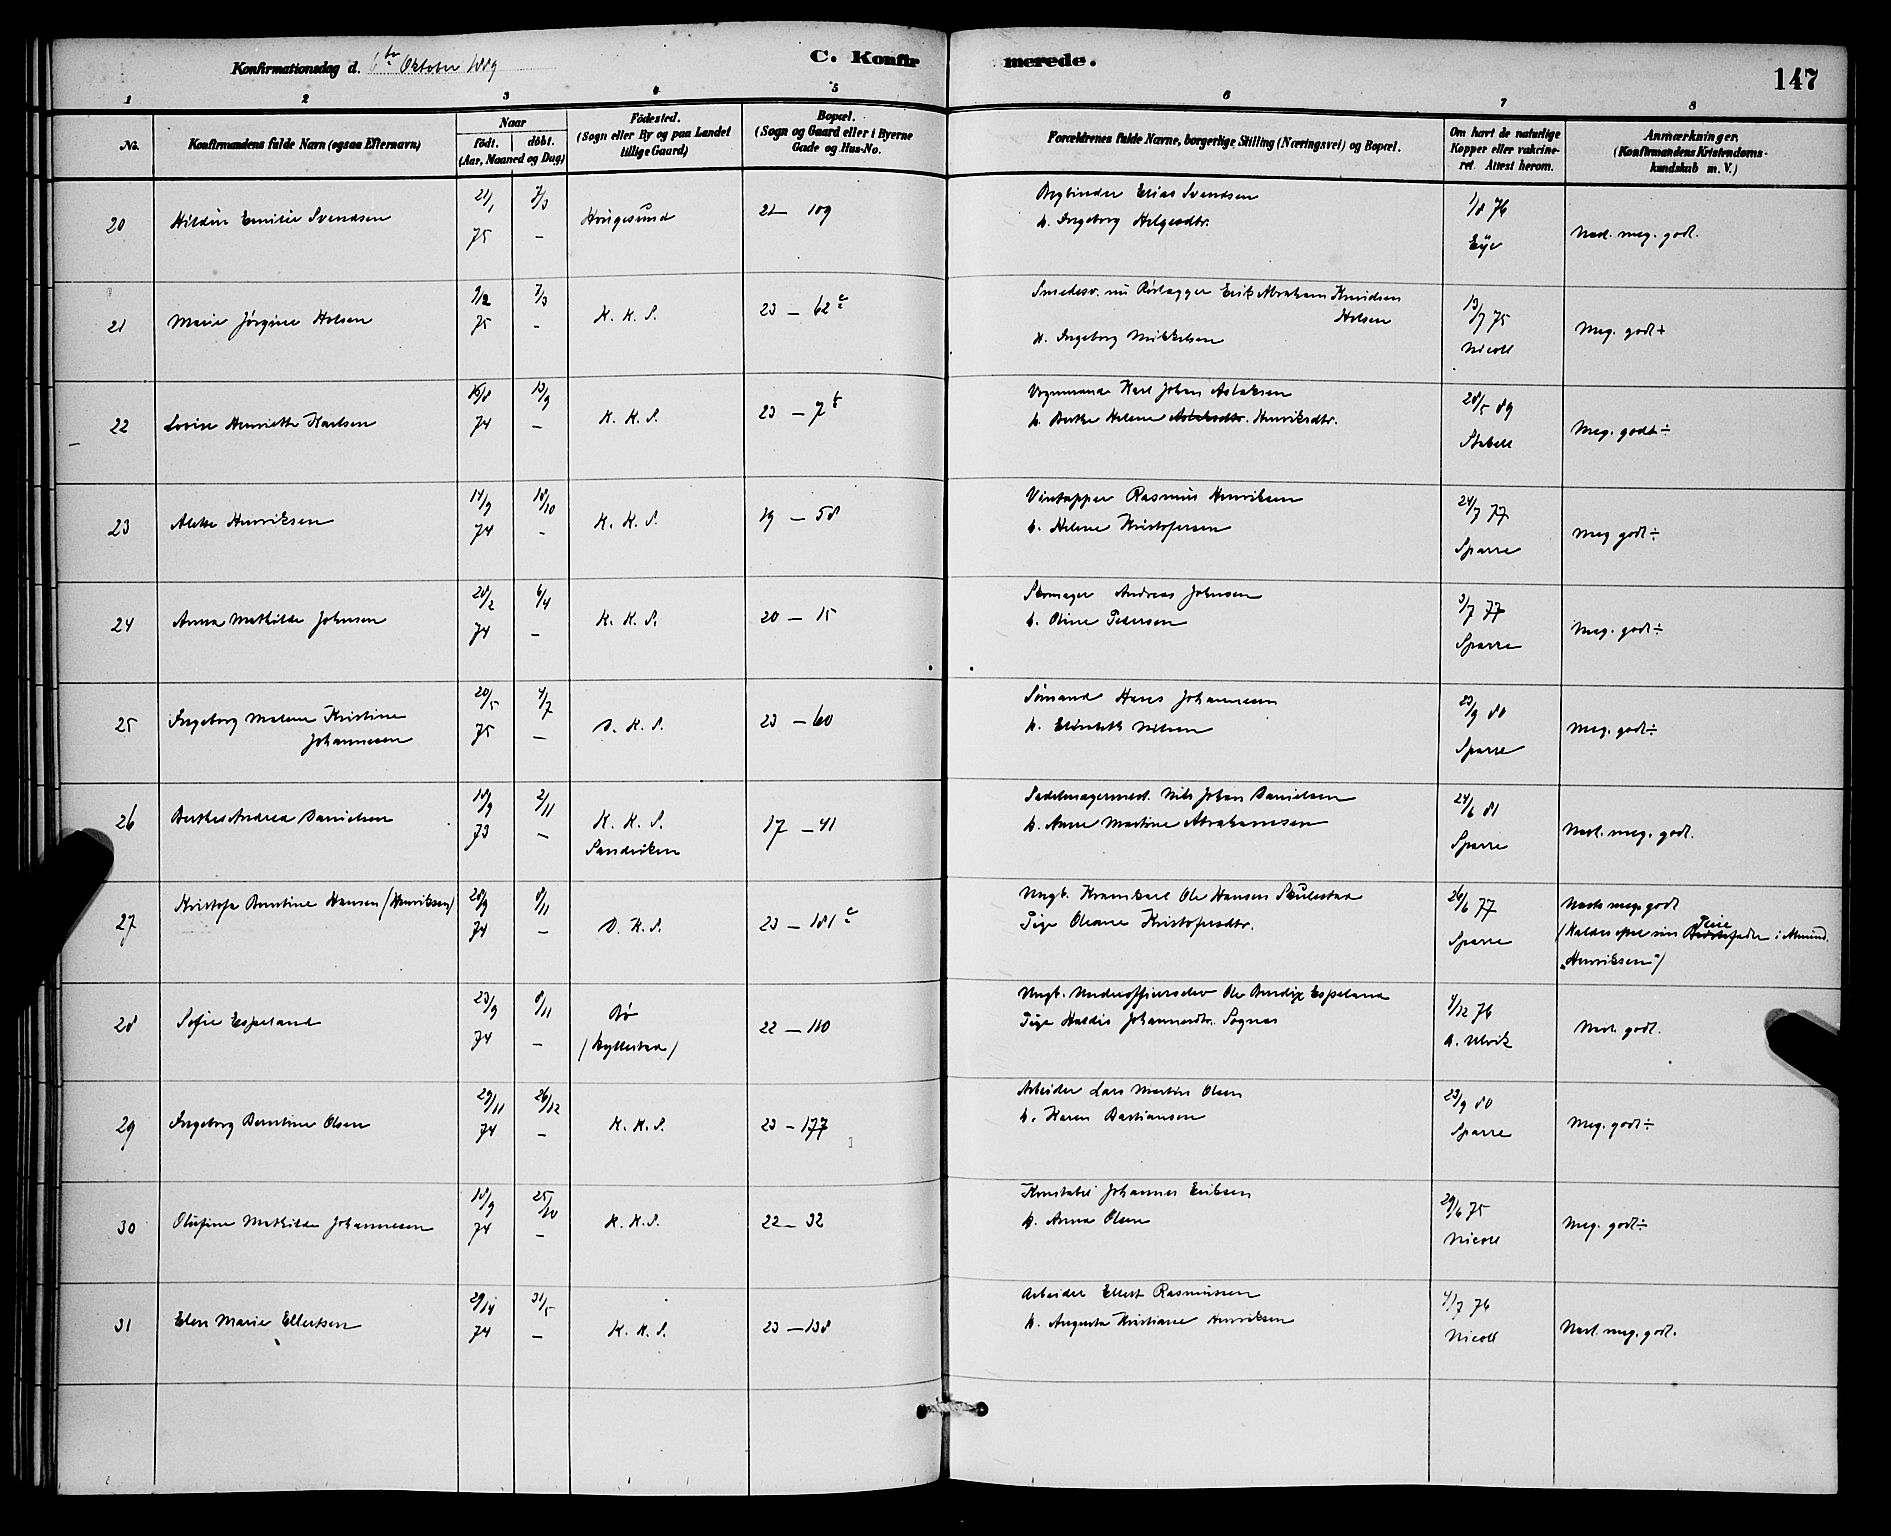 Konfirmationsdag d. 6te Oktober 1889
C. Konfirmerede.
147
1 2 3 4 5 6 7 8
No.
Konfirmandens fulde Navn (ogsaa Efternavn)
Naar
födt. döbt.
(Aar, Maaned og Dag)
Födested.
(Sogn eller By og paa Landet
tillige Gaard)
Bopæl.
(Sogn og Gaard eller i Byerne
Gade og Hus-No.
Forældrenes fulde Navne, borgerlige Stilling (Næringsvei) og Bopæl.
Om havt de naturlige
Kopper eller vakcine-
ret. Attest herom.
Anmærkninger.
(Konfirmandens Kristendoms-
kundskab m. V.)
20 Hilda Emilie Svendsen 21/1 75 7/3 – Haugesund 21 – 109
Bogbinder Elias Svendsen
h. Ingeborg Helgesdtr.
1/8 76
Eye
Næst. meg. godt.
21 Marie Jørgine Holsen 9/2 75 7/3 – K. K. S. 23 – 62c
Smedesv. nu Rørlægger Erik Abraham Knudsen
Holsen
h. Ingeborg Mikkelsen
13/7 75
Nicoll
Meg. godt+
22 Lovise Henriette Karlsen 15/8 74 13/9 – K. K. S. 23 – 7b
Vognmand Karl Johan Aslaksen
h. Berthe Helene Aslaksdtr. Henriksdtr.
28/5 89
Stabell
Meg. godt÷
23 Alette Henriksen 14/9 74 18/10 – K. K. S. 19 – 58
Vintapper Rasmus Henriksen
h. Helene Kristofersen
24/7 77
Sparre
Meg godt÷
24 Anna Mathilde Johnsen 28/2 74 6/4 – K. K. S. 20 – 15
Skomager Andreas Johnsen
h. Oline Pedersen
3/7 77
Sparre
Meg. godt÷
25 Ingeborg Malene Kristine
Johannesen 20/5 75 4/7 – D. K. S. 23 – 60
Sømand Hans Johannesen
h. Elisabeth Nilsen
23/9 80
Sparre
Meg. godt÷
26 Berthe Andrea Danielsen 18/9 73 2/11 – K. K. S.
Sandviken 17 – 41
Sadelmagermest. Nils Johan Danielsen
h. Anne Martine Abrahamsen
24/6 81
Sparre
Næst. meg. godt.
27 Kristofa Berntine Hansen (Henriksen) 28/9 74 8/11 – D. K. S. 23 – 181c
Ungk. Kramkarl Ole Hansen Skulestad
Pige Oleane Kristofersdtr.
26/6 77
Sparre
Næst. meg. godt
(Kaldes efter sin Pleiefader i Almind.
"Henriksen")
28 Sofie Espeland 23/9 74 8/11 – Bø
(Hyllestad) 22 – 110
Ungk. Underofficerselev Ole Bendix Espeland
Pige Haldis Johannesdtr. Sognes
4/12 76
A. Ulvik
Næst. godt.
29 Ingeborg Berntine Olsen 29/11 74 26/12 – K. K. S. 23 – 177
Arbeider Lars Martin Olsen
h. Karen Bastiansen
23/9 80
Sparre
Meg. godt÷
30 Olufine Mathilde Johannesen 18/9 74 25/10 – K. K. S. 22 – 32
Konstabel Johannes Eriksen
h. Anna Olsen
29/6 75
Nicoll
Meg. godt÷
31 Elen Marie Ellertsen 29/14 74 31/5 – K. K. S. 23 – 138
Arbeider Ellert Rasmussen
h. Augusta Kristiane Henriksen
4/7 76
Nicoll
Næst. meg. godt.